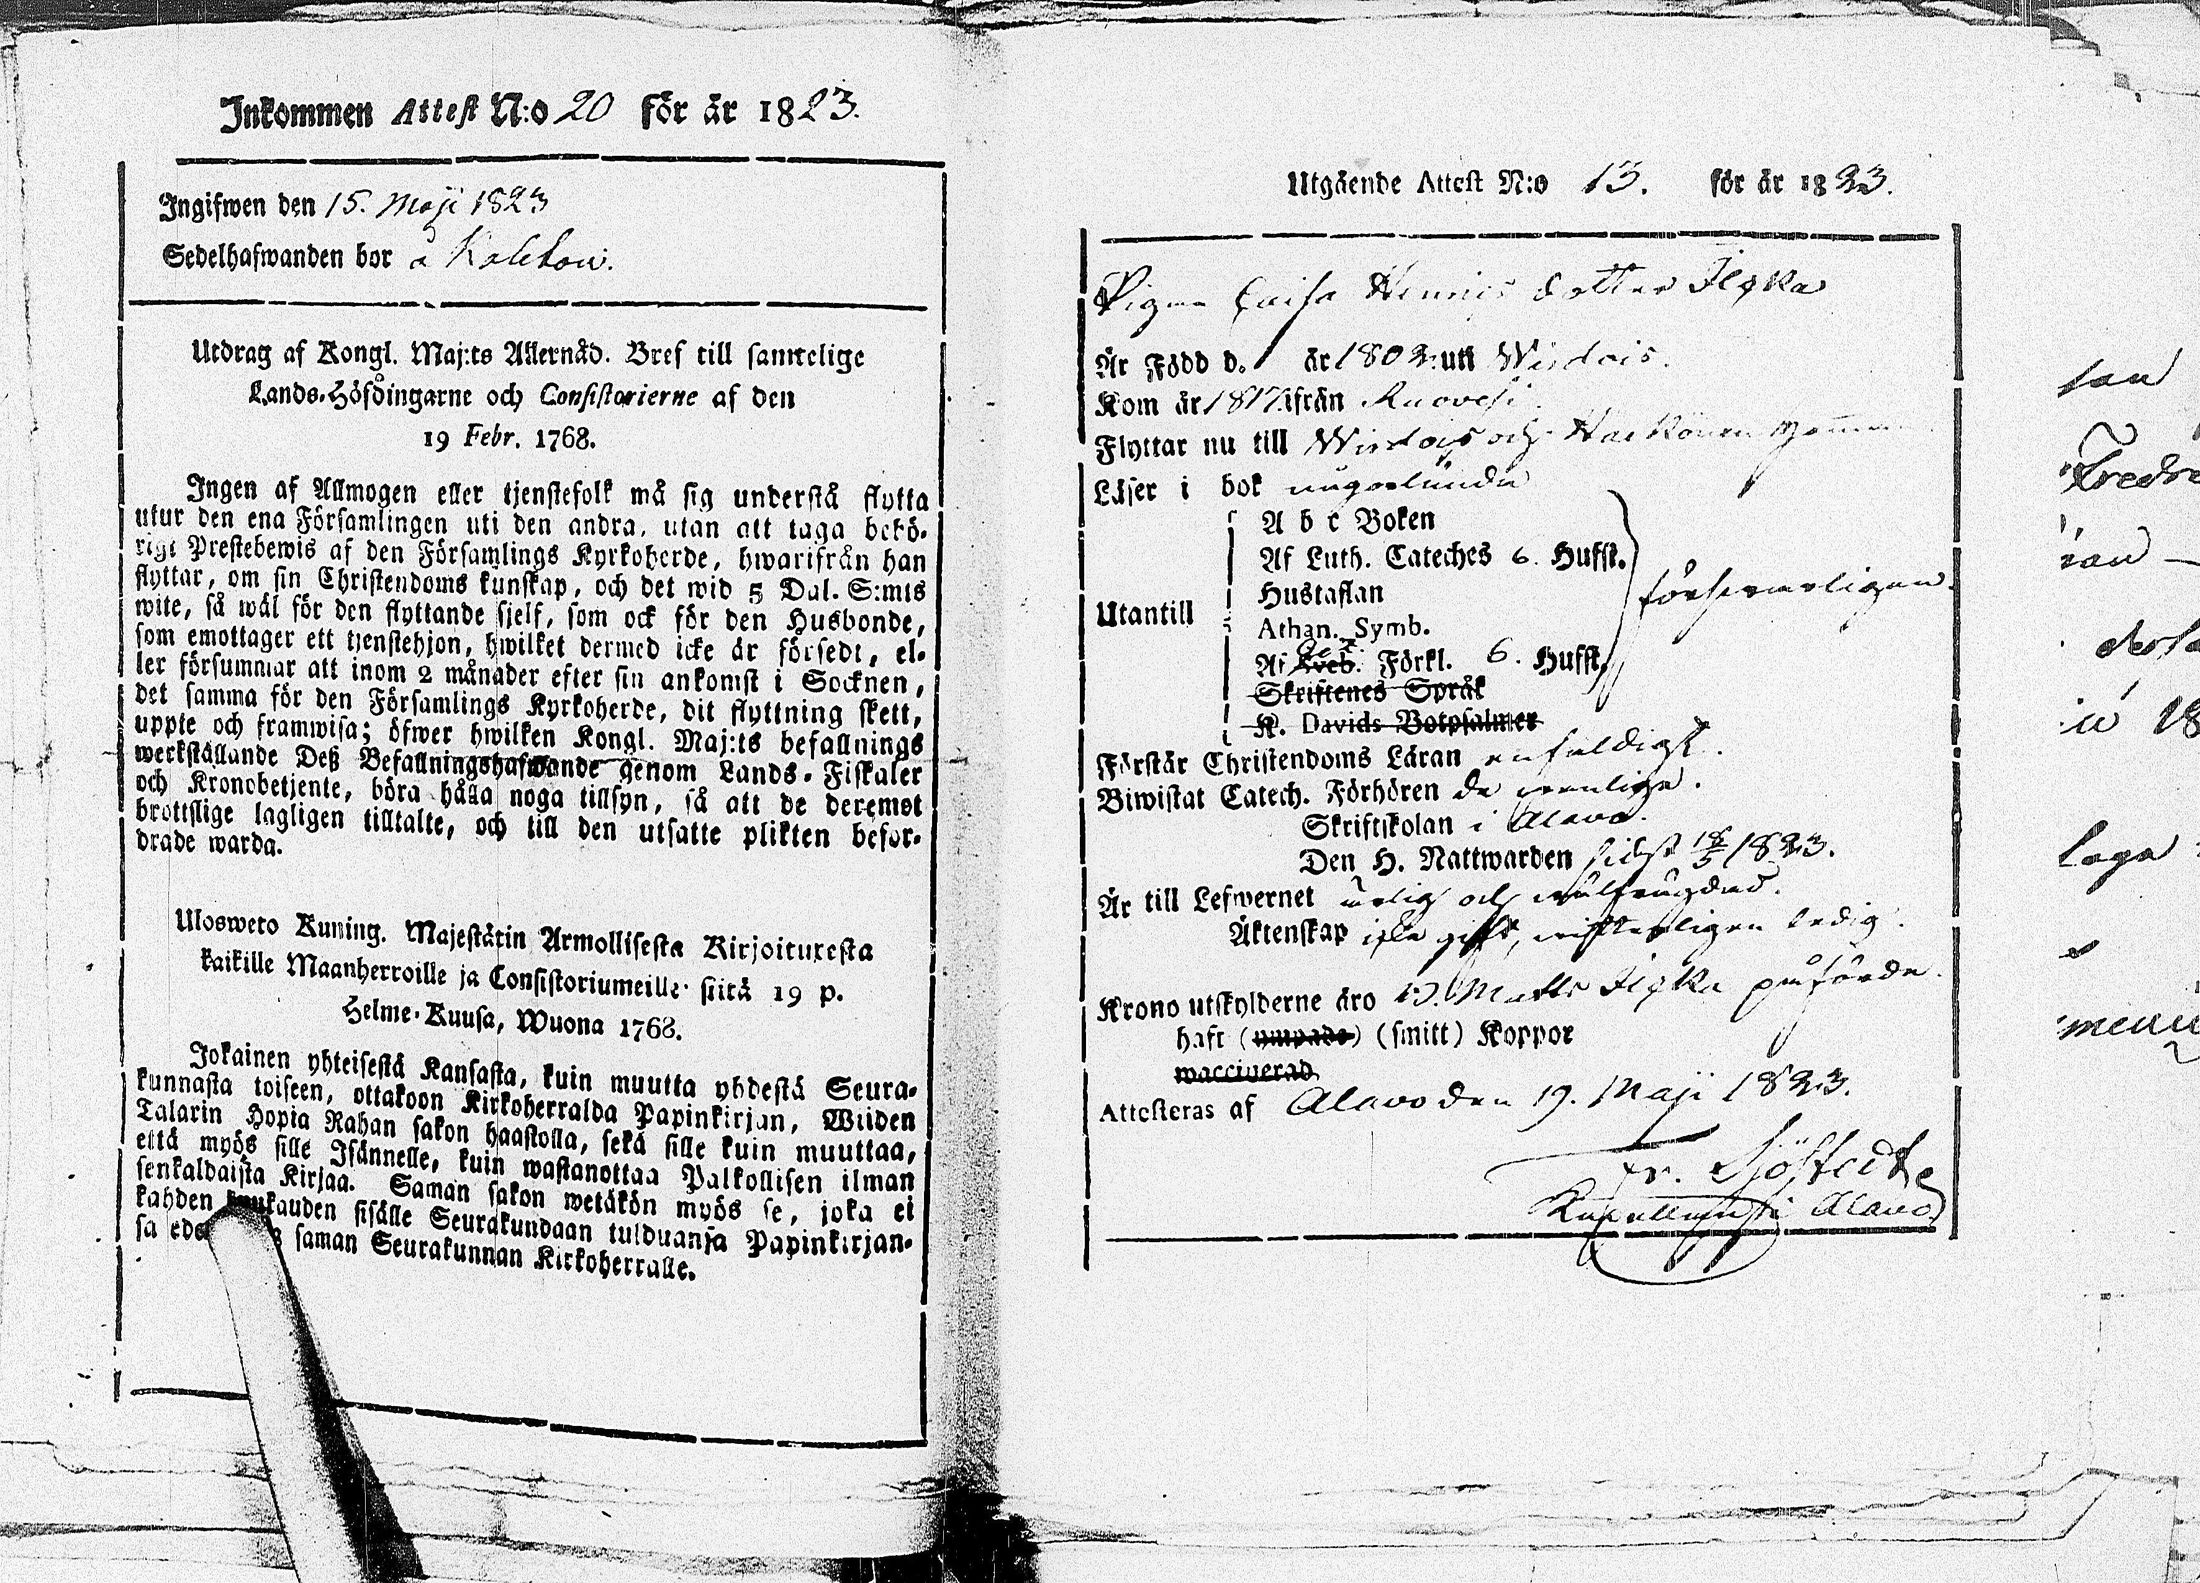 Inkommen Attest N:o 20 för år 1823.
Ingifwen den 15. Maji 1823
Sedelhafwanden bor å
Utdrag af Kongl. Maj:ts Allernåd. Bref till samtelige
Lands-Höfdingarne och Consistorierne af den
19 Febr. 1768.
Ingen af Allmogen eller tjenstefolk må sig understå flytta
utur den ena Församlingen uti den andra, utan att taga behö-
rigt Prestebewis af den Församlings Kyrkoherde, hwarifrån han
flyttar, om sin Christendoms kunskap, och det wid 5 Dal. S:mts
wite, så wäl för den flyttande sjelf, som ock för den Husbonde,
som emottager ett tjenstehjon, hwilket dermed icke är försedt, el-
ler försummar att inom 2 månader efter sin ankomst i Socknen,
det samma för den Församlings Kyrkoherde, dit flyttning skett,
uppte och framwisa; öfwer hwilken Kongl. Maj:ts befallnings
werkställande Deß Befallningshafwande genom Lands-Fiskaler
och Kronobetjente, böra hålla noga tillsyn, så att de deremot
brottslige lagligen tilltalte, och till den utsatte plikten befor-
drade warda.
Ulosweto Kuning. Majestätin Armollisesta Kirjoituxesta
kaikille Maanherroille ja Consistoriumeille siitä 19 p.
Helme-Kuusa, Wuona 1768.
Jokainen yhteisestä Kansasta, kuin muutta yhdestä Seura-
kunnasta toiseen, ottakoon Kirkoherralda Papinkirjan, Wiiden
Talarin Hopia Rahan sakon haastolla, sekä sille kuin muuttaa,
että myös sille Isännelle, kuin wastanottaa Palkollisen ilman
senkaldaista Kirjaa. Saman sakon wetäkön myös se, joka ei
kahden kuukauden sisälle Seurakundaan tulduansa Papinkirjan-
sa saman Seurakunnan Kirkoherralle.
Utgående Attest N:o 13. för år 1823.
Pigan Caisa Henrics dotter Ilkka
Är Född d. år 1802 uti Wirdois.
Kom år 1817 ifrån Ruovesi.
Flyttar nu till Wirdois och
Läser i bok någorlunda
Utantill
A b c Boken
Af Luth. Cateches 6. Hufst.
Hustaflan
Athan. Symb.
Af Sveb. Förkl. 6. Hufst.
Skriftenes Språk
K. Davids Botpsalmer
försvarligen.
Förstår Christendoms Läran enfaldigt.
Biwistat Catech. Förhören de vanliga.
Skriftskolan i Alavo.
Den H. Nattwarden sidst 18/5 1823.
Är till Lefwernet ärlig och wälfrägdad.
Äktenskap icke gift, ledig.
Krono utskylderne äro Matts Ilkka påförde.
haft (ympade) (smitt) Koppor
waccinerad
Attesteras af Alavo den 19. Maji 1823.
Fr. Sjöstedt
Alavo
san
Fredr
laga